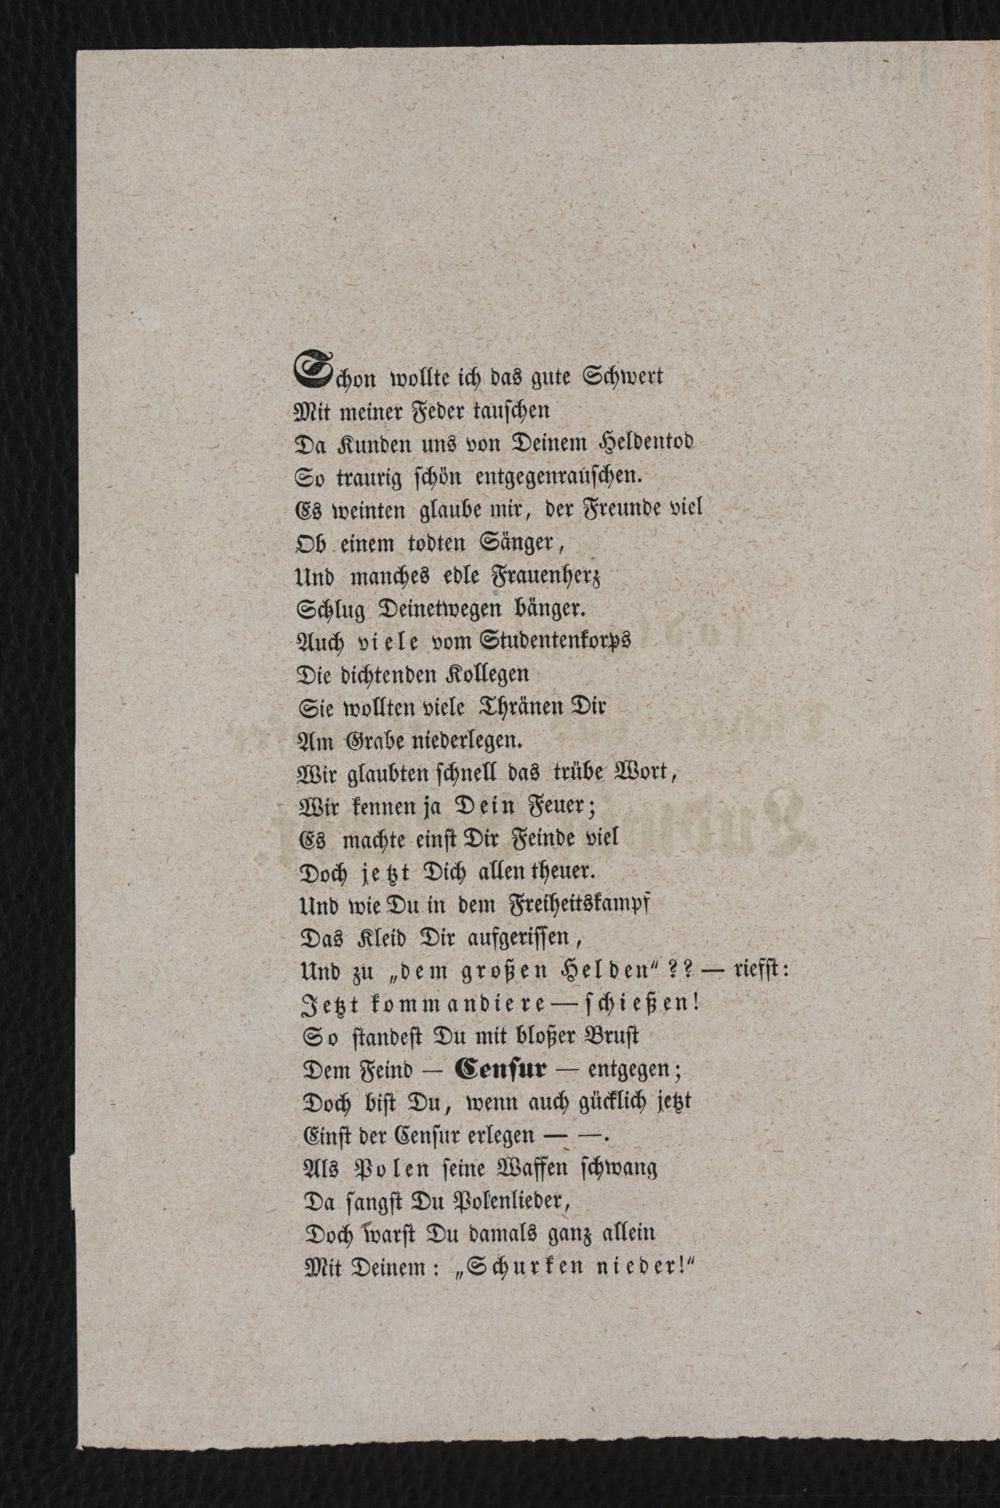 Schon wollte ich das gute Schwert
Mit meiner Feder tauschen
Da Kunden uns von Deinem Heldentod
So traurig schön entgegenrauschen.
Es weinten glaube mir, der Freunde viel
Ob einem todten Sänger,
Und manches edle Frauenherz
Schlug Deinetwegen bänger.
Auch viele vom Studentenkorps
Die dichtenden Kollegen
Sie wollten viele Thränen Dir
Am Grabe niederlegen.
Wir glaubten schnell das trübe Wort,
Wir kennen ja Dein Feuer;
Es machte einst Dir Feinde viel
Doch jetzt Dich allen theuer.
Und wie Du in dem Freiheitskampf
Das Kleid Dir aufgerissen,
Und zu „dem großen Helden“?? — riefst:
Jetzt kommandiere — schießen!
So standest Du mit bloßer Brust
Dem Feind — Censur — entgegen;
Doch bist Du, wenn auch gücklich jetzt
Einst der Censur erlegen — —.
Als Polen seine Waffen schwang
Da sangst Du Polenlieder,
Doch warst Du damals ganz allein
Mit Deinem: „Schurken nieder!“